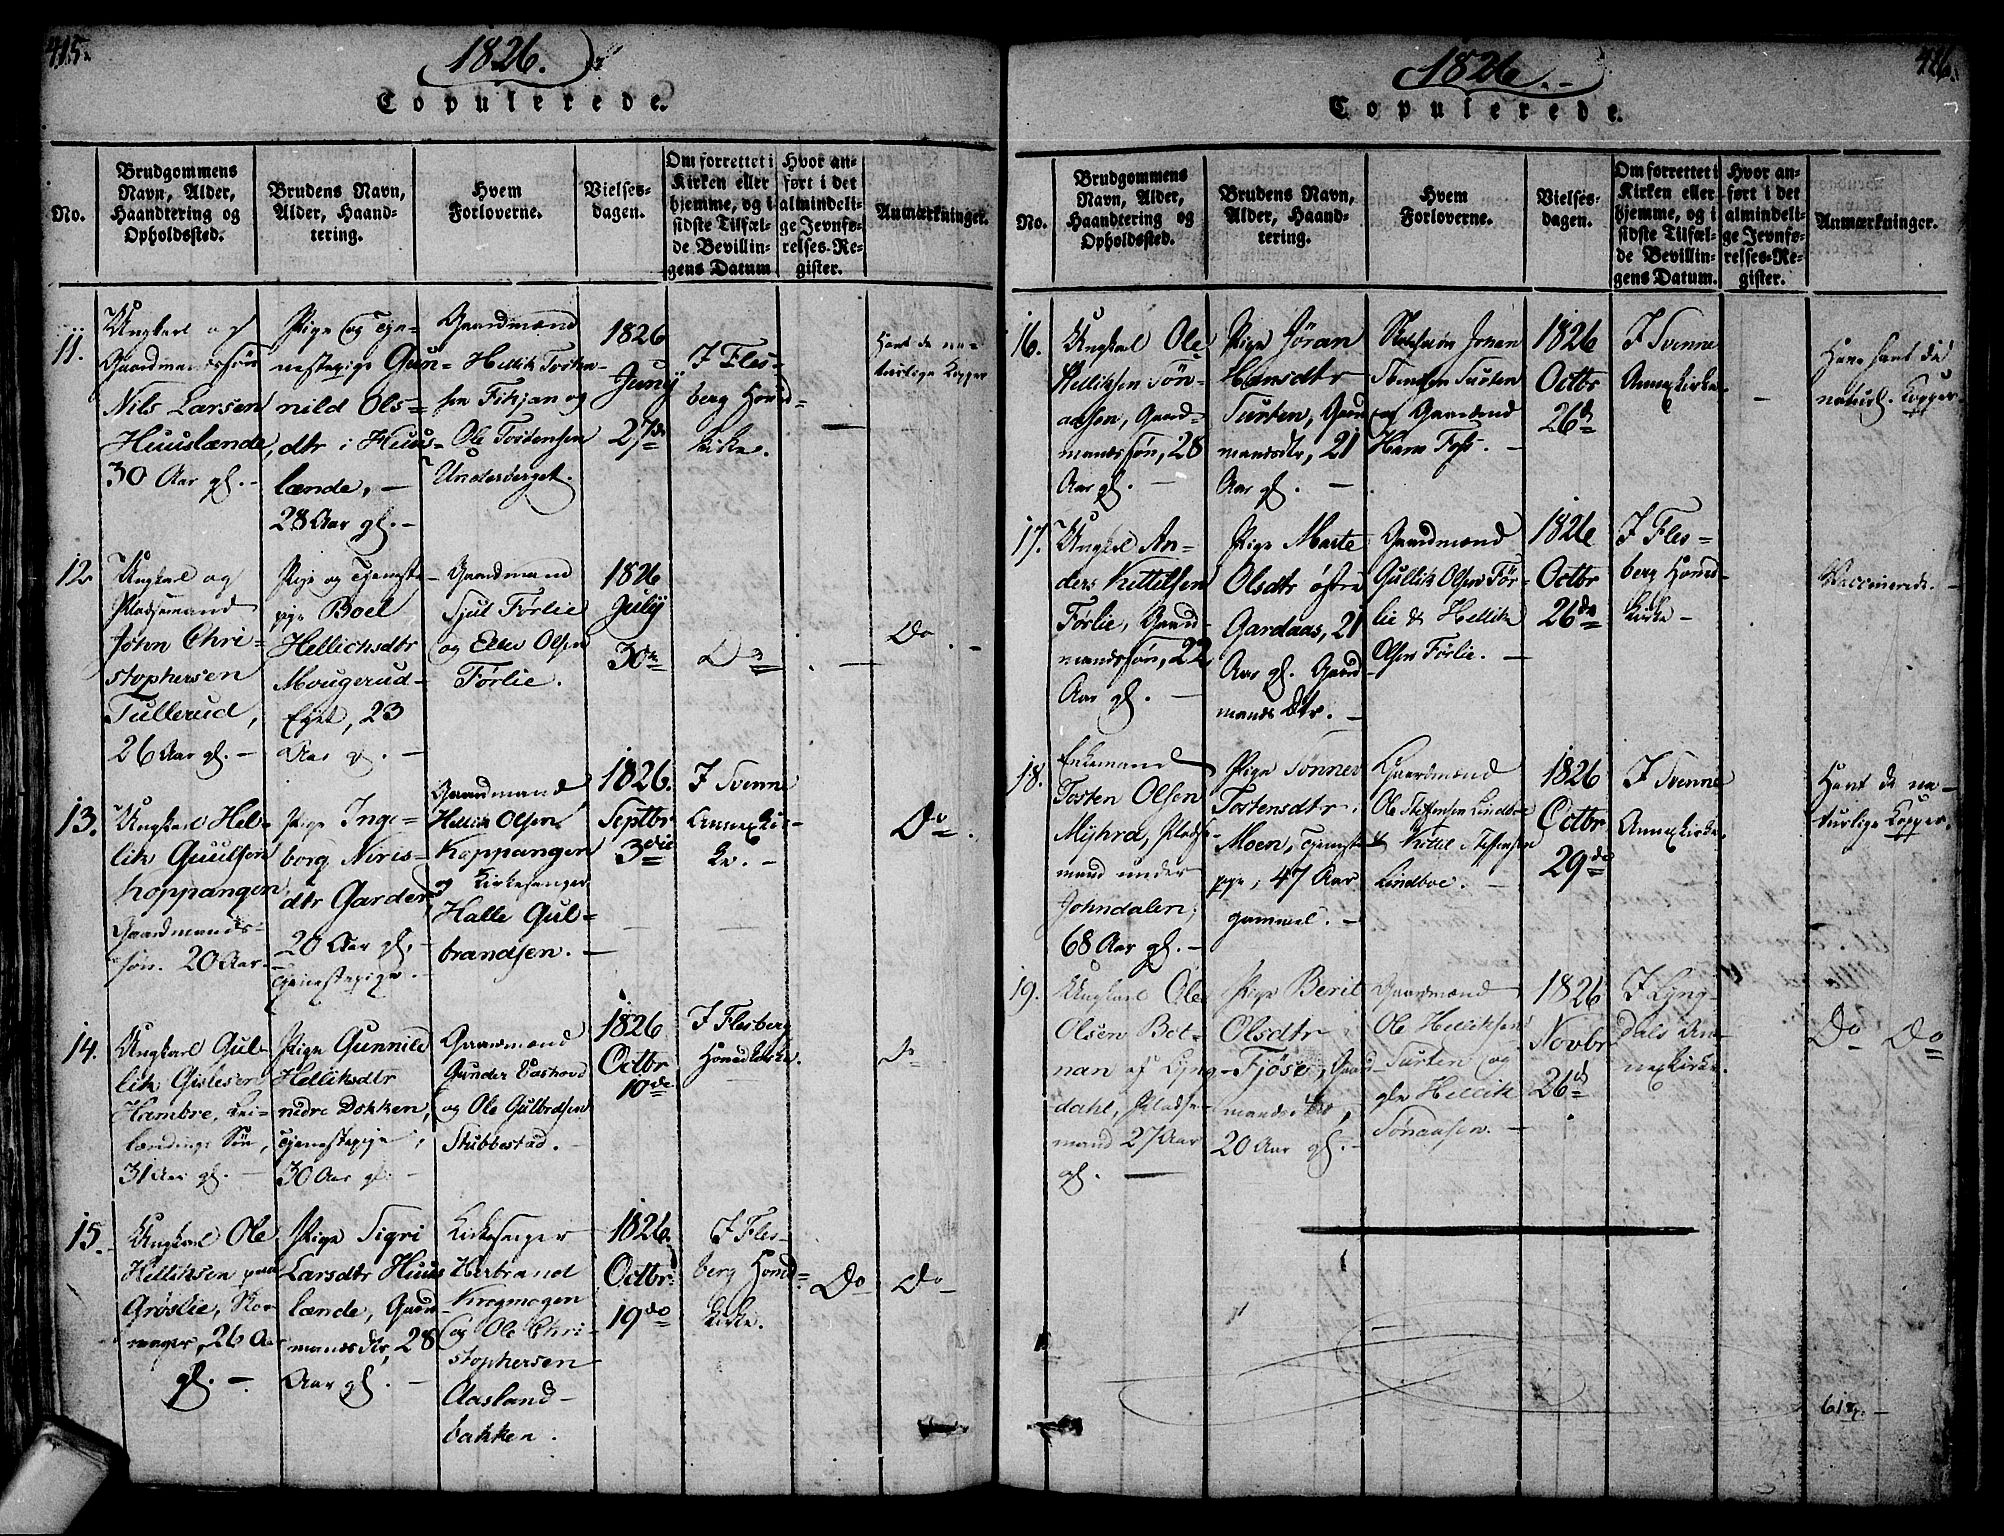 415.
1826.
Copulerede.
No.
Brudgommens
Navn, Alder,
Haandtering og
Opholdssted.
Brudens Navn,
Alder, Haand-
tering.
Hvem
Forloverne.
Vielses-
dagen.
Om forrettet i
Kirken eller
hjemme, og i
sidste Tilfæl-
de Bevillin-
gens Datum
Hvor an-
ført i det
almindeli-
ge Jevnfø-
relses-Re-
gister.
Anmærkninger.
11.
Ungkarl og
Gaardmandssøn
Nils Larsen
Huuslænde,
30 Aar gl. -
Pige og Tje-
nestepige Gun-
nild Ols-
dtr i Huus-
lænde, -
28 Aar gl. -
Gaardmænd
Hellik Tosten-
sen Fikjan og
Ole Tostensen
Underberget.
1826
Juny
27de
I Fles-
berg Hoved-
kirke.
Havt de na-
turlige Kopper
12.
Ungkarl og
Pladsemand
Josten Chri-
stophersen
Tullerud,
26 Aar gl. -
Pige og Tjeneste-
pige Boel
Hellichsdtr
Mougerud-
Eyet, 23
Aar gl. -
Gaardmænd
Sjul Førlie
og Ellev Olsen
Førlie.
1826
July
30te
Do
Do
13.
Ungkarl Hel-
lik Guulsen
Koppangen
Gaardmands-
søn. 20 Aar. -
Pige Inge-
borg Niris-
dtr Garder,
20 Aar gl. -
Tjenestepige.
Gaardmænd
Hellik Olsen
Koppangen
og Kirkesanger
Halle Gul-
brandsen. -
1826.
Septbr
3die
I Svenne
Annex Kir-
ke. -
Do.
14.
Ungkarl Gul-
lik Gislesen
Hambre, Lei-
lændings Søn,
31 Aar gl. -
Pige Gunnild
Helliksdtr
nedre Dokken,
Tjenestepige,
30 Aar gl. -
Gaardmænd
Gunder Aashovd
og Ole Gulbrdsen
Stubbestad. -
1826
Octbr
10de
I Flesberg
Hovedkirke
Do
15.
Ungkarl Ole
Helliksen paa
Grøslie, Skor-
mager, 26 Aar
gl. -
Pige Sigri
Larsdtr Huus
lænde, Gaard
mandsdtr, 28
Aar gl. -
Kirkesanger
Herbrand
Krogmogen
og Ole Chri-
stophersen
Aasland-
bakken.
1826.
Octbr
19de
I Fles-
berg Hoved-
kirke.
Do
Do
416.
1826.
Copulerede.
No.
Brudgommens
Navn, Alder,
Haandtering og
Opholdssted.
Brudens Navn,
Alder, Haand-
tering.
Hvem
Forloverne.
Vielses-
dagen.
Om forrettet i
Kirken eller
hjemme, og i
sidste Tilfæl-
de Bevillin-
gens Datum.
Hvor an-
ført i det
almindeli-
ge Jevnfø-
relses-Re-
gister.
Anmærkninger.
16.
Ungkarl Ole
Helliksen Søn-
aasen, Gaard-
mandssøn, 28
Aar gl. -
Pige Jøran
Hansdtr
Turten, Gaard
mandsdtr, 21
Aar gl. -
Johan
Turten
og Gaardmand
Hans Foss. -
1826
Octbr
26de
I Svenne
Annexkirke.
Have havt de
naturl. Kopper.
17.
Ungkarl An-
ders Kittilsen
Førlie, Gaard-
mandssøn, 22
Aar gl. -
Pige Marte
Olsdtr østre
Gardaas, 21
Aar gl. Gaard
mands Dtr. -
Gaardmænd
Gullik Olsen Før-
lie & Hellik
Olsen Førlie. -
1826
Octbr
26de
I Fles-
berg Hoved-
kirke -
Vaccinerede. -
18.
Enkemand
Tosten Olsen
Myhra, Pladse-
mand under
Johndalen,
68 Aar gl. -
Pige Sønnev
Tostensdtr
Moen, Tjeneste
pige, 47 Aar
gammel. -
Gaardmænd
Ole Steffensen Lindboe
& Kittil Steffensen
Lindboe. -
1826
Octbr
29de
I Svenne
Annexkirke.
Havt de na-
turlige Kopper.
19.
Ungkarl Ole
Olsen Bot-
nan af Lyng
dahl, Pladse-
mand 27 Aar
gl. -
Pige Berit
Olsdtr
Fjøse, Gaard
mandsdtr,
20 Aar gl. -
Gaardmænd
Ole Helliksen
Turten og
gle Hellik
Sønaasen. -
1826
Novbr
26de
I Lyng-
dals An-
nexkirke.
Do Do